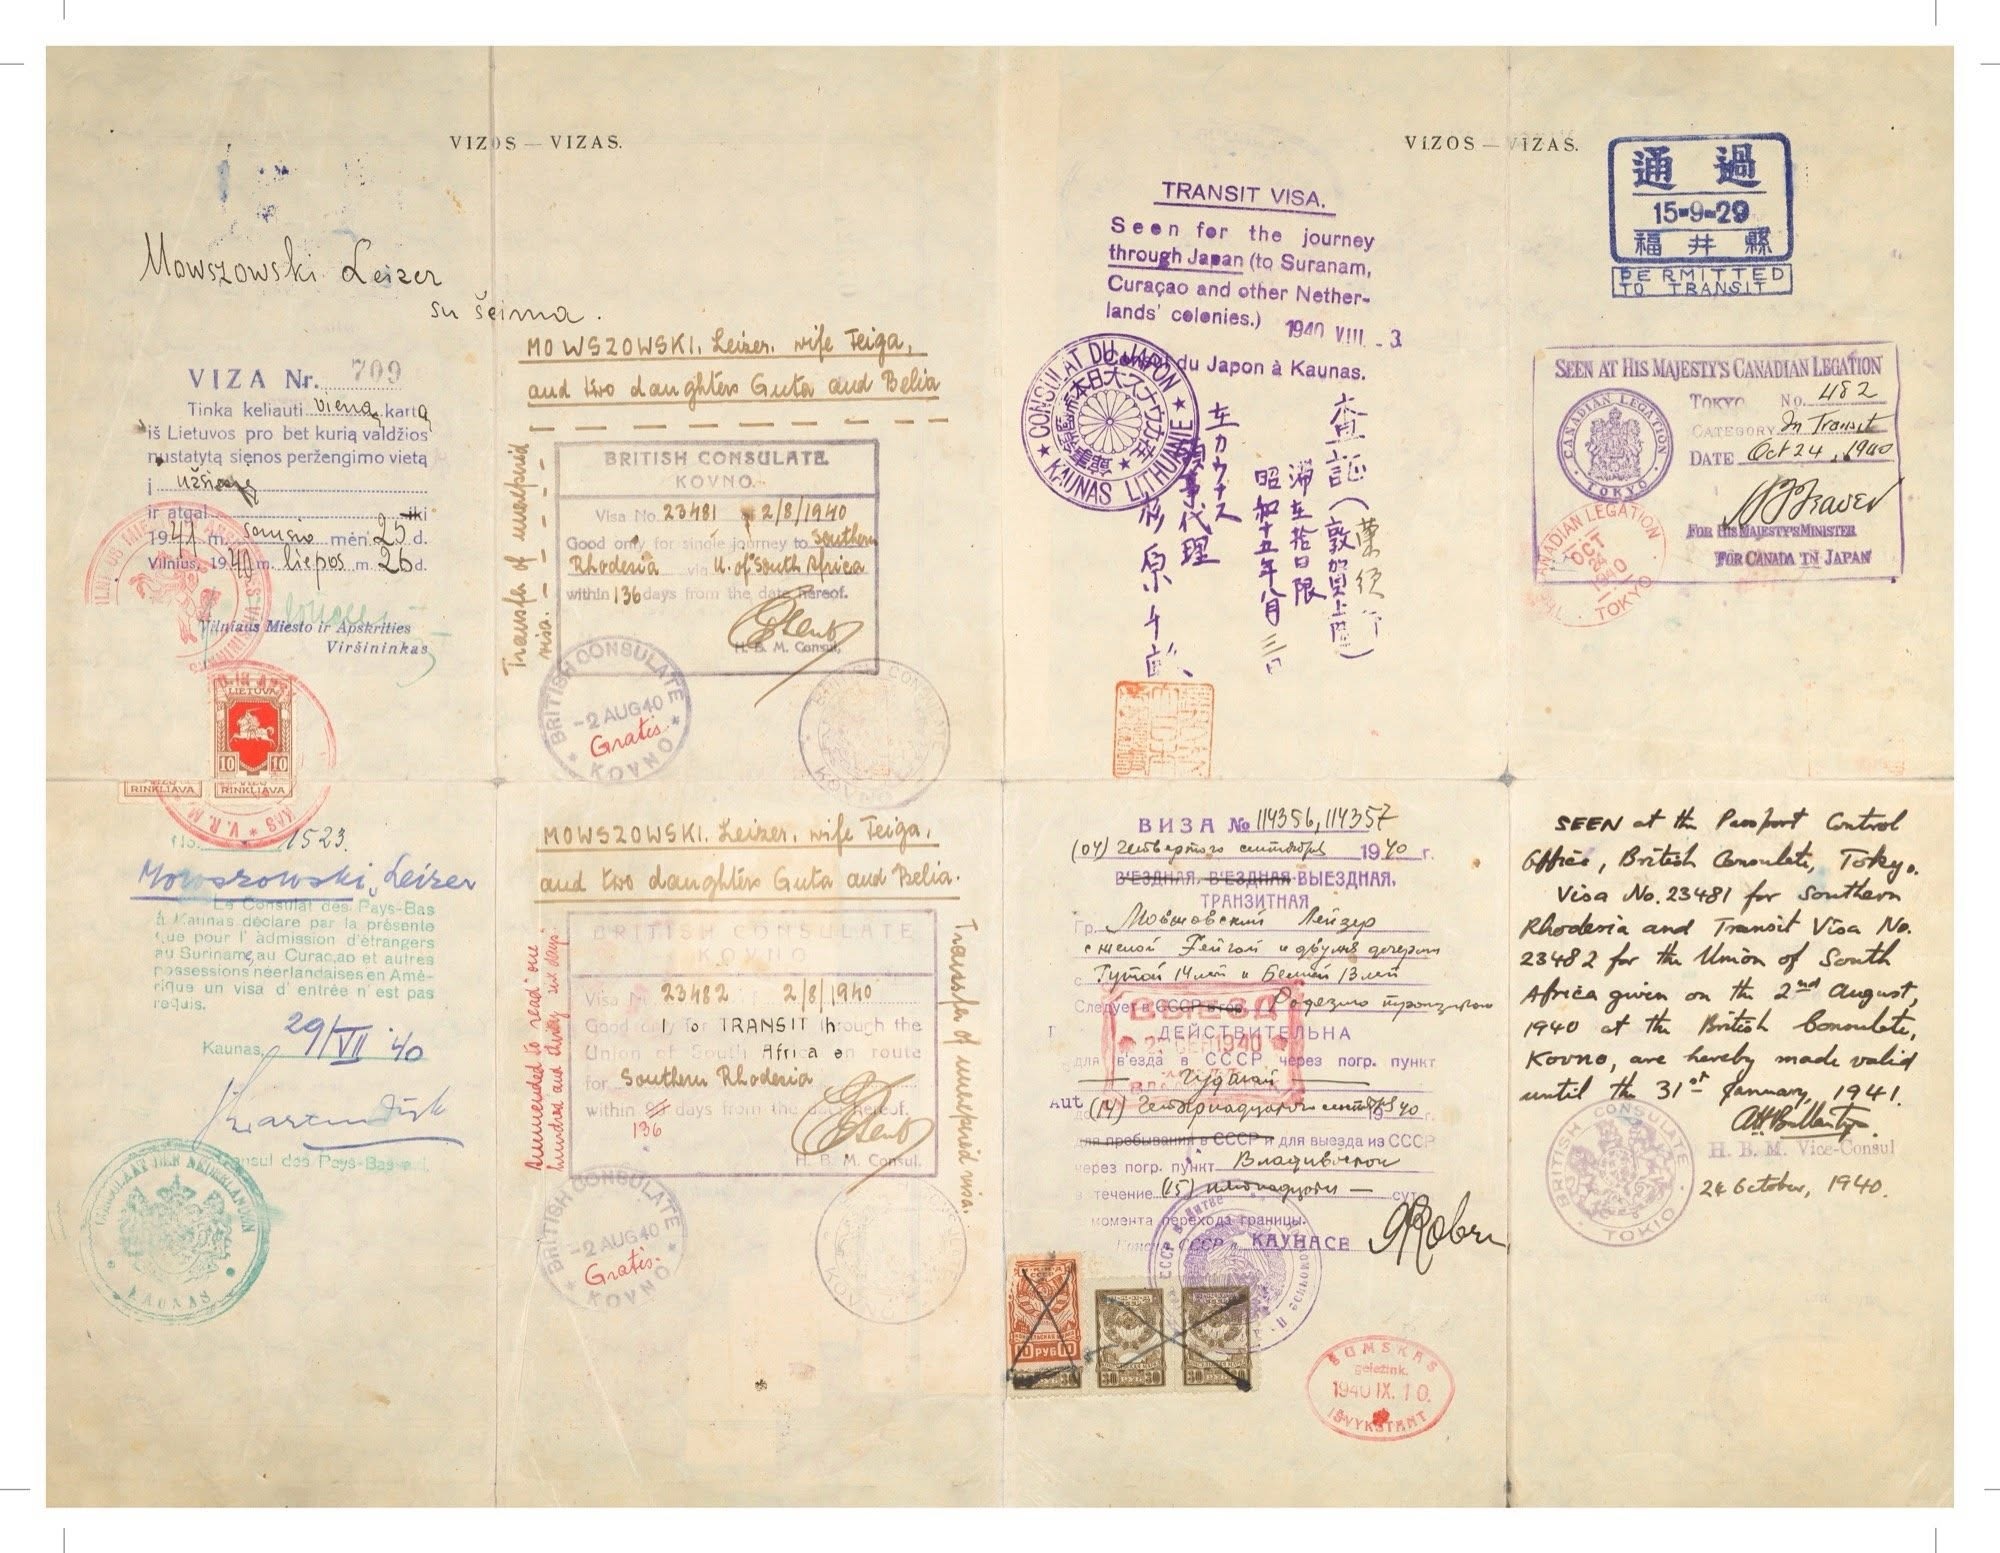 VIZOS — VIZAS.
Mowszowski Leizer
su šeima.
VIZA Nr. 709
Tinka keliauti vieną kartą
iš Lietuvos pro bet kurią valdžios
nustatytą sienos peržengimo vietą
į užsienį
ir atgal iki
1941 m. sausio mėn. 25 d.
Vilnius, 1940 m. liepos m. 26 d.
Vilniaus Miesto ir Apskrities
Viršininkas
LIETUVA
10 10
RINKLIAVA RINKLIAVA
MOWSZOWSKI, Leizer, wife Feiga,
and two daughters Guta and Belia
Transfer of unexpired
visa.
BRITISH CONSULATE
KOVNO.
Visa No. 23481 2/8/1940
Good only for single journey to Southern
Rhodesia via U. of South Africa
within 136 days from the date hereof.
H. B. M. Consul.
BRITISH CONSULATE
-2 AUG 40
Gratis.
KOVNO
No. 1523.
Mowszowski, Leizer
Le Consulat des Pays-Bas
à Kaunas déclare par la présente
que pour l' admission d'étrangers
au Suriname, au Curaçao et autres
possessions néerlandaises en Amé-
rique un visa d' entrée n'est pas
requis.
Kaunas, 29/VII '40
Consul des Pays-Bas a.i.
CONSULAAT DER NEDERLANDEN
KAUNAS
MOWSZOWSKI, Leizer, wife Feiga,
and two daughters Guta and Belia.
Ammended to read "one
hundred and thirty six days".
Transfer of unexpired visa.
BRITISH CONSULATE
KOVNO
Visa No 23482 2/8/1940
Good only for TRANSIT through the
Union of South Africa en route
for Southern Rhodesia
within 90 days from the date hereof.
136
H. B. M. Consul.
BRITISH CONSULATE
-2 AUG 40
Gratis.
KOVNO
VIZOS — VIZAS.
TRANSIT VISA.
Seen for the journey
through Japan (to Suranam,
Curaçao and other Nether-
lands' colonies.)
1940 VIII. - 3
Consul du Japon à Kaunas.
CONSULAT DU JAPON
KAUNAS LITHUANIE
査証
(敦賀上陸)
滞在拾日限
昭和十五年八月三日
在カウナス
領事代理
杉原千畝
通過
15-9-29
福井縣
PERMITTED
TO TRANSIT
SEEN AT HIS MAJESTY'S CANADIAN LEGATION
TOKYO No. 482
CATEGORY In Transit
DATE Oct 24, 1940
FOR HIS MAJESTY'S MINISTER
FOR CANADA IN JAPAN
CANADIAN LEGATION
TOKYO
CANADIAN LEGATION
OCT
TOKYO
ВИЗА № 114356, 114357
(04) Четвертого сентября 1940 г.
В'ЕЗДНАЯ, В'ЕЗДНАЯ-ВЫЕЗДНАЯ,
ТРАНЗИТНАЯ
Гр. Мовшовский Лейзер
с женой Фейгой и двумя дочерьми
Гутой 14 лет и Белией 13 лет
Следует в СССР в гор. Родезию транзитом
ДЕЙСТВИТЕЛЬНА
для в'езда в СССР через погр. пункт
Гудогай
(14) Четырнадцатого сентября 1940 г.
для пребывания в СССР и для выезда из СССР
через погр. пункт Владивосток
в течение (15) пятнадцати — сут.
с момента перехода границы.
СССР в КАУНАСЕ
ВЫЕЗД
1940
10 РУБ 10
30 30
30 30
1940 IX. 10.
IŠVYKSTANT
SEEN at the Passport Control
Office, British Consulate, Tokyo.
Visa No. 23481 for Southern
Rhodesia and Transit Visa No.
23482 for the Union of South
Africa given on the 2nd August,
1940 at the British Consulate,
Kovno, are hereby made valid
until the 31st January, 1941.
H. B. M. Vice-Consul
24 October, 1940.
BRITISH CONSULATE
TOKIO